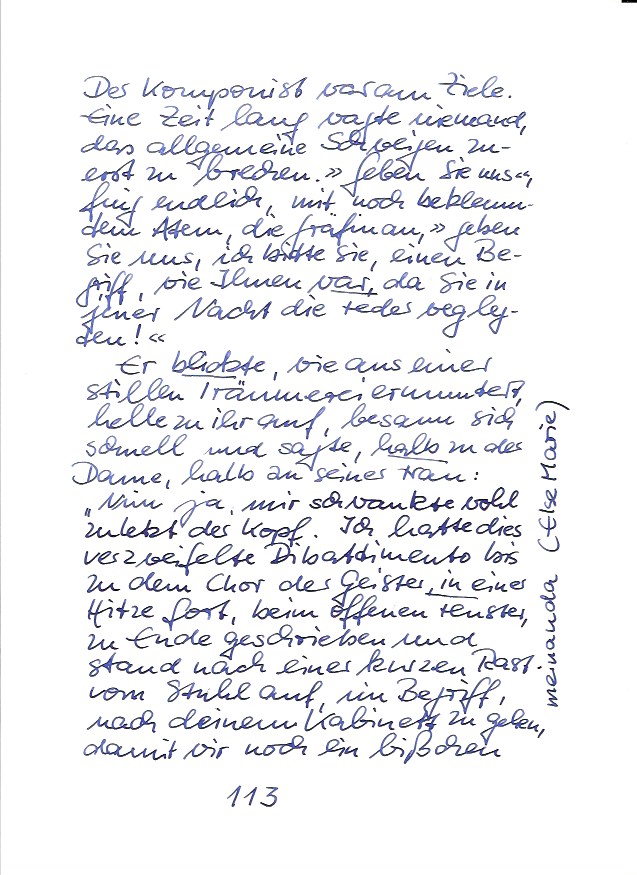 Der Komponist war am Ziele.
Eine Zeit lang wagte niemand,
das allgemeine Schweigen zu-
erst zu brechen. » Geben Sie uns«,
fing endlich, mit noch beklemm-
dem Atem, die Gräfin an, » geben
Sie uns, ich bitte Sie, einen Be-
griff, wie Ihnen war, da Sie in
jener Nacht die Feder wegleg-
ten! «
Er blickte, wie aus einer
stillen Träumerei ermuntert,
helle zu ihr auf, besann sich
schnell und sagte, halb zu der
Dame, halb zu seiner Frau:
„Nun ja, mir schwankte wohl
zuletzt der Kopf. Ich hatte dies
verzweifelte Dibattimento bis
zu dem Chor der Geister, in einer
Hitze fort, beim offenen Fenster,
zu Ende geschrieben und
stand nach einer kurzen Rast
vom Stuhl auf, im Begriff,
nach deinem Kabinett zu gehen,
damit wir noch ein bißchen
113
meinanda (Else Marie)